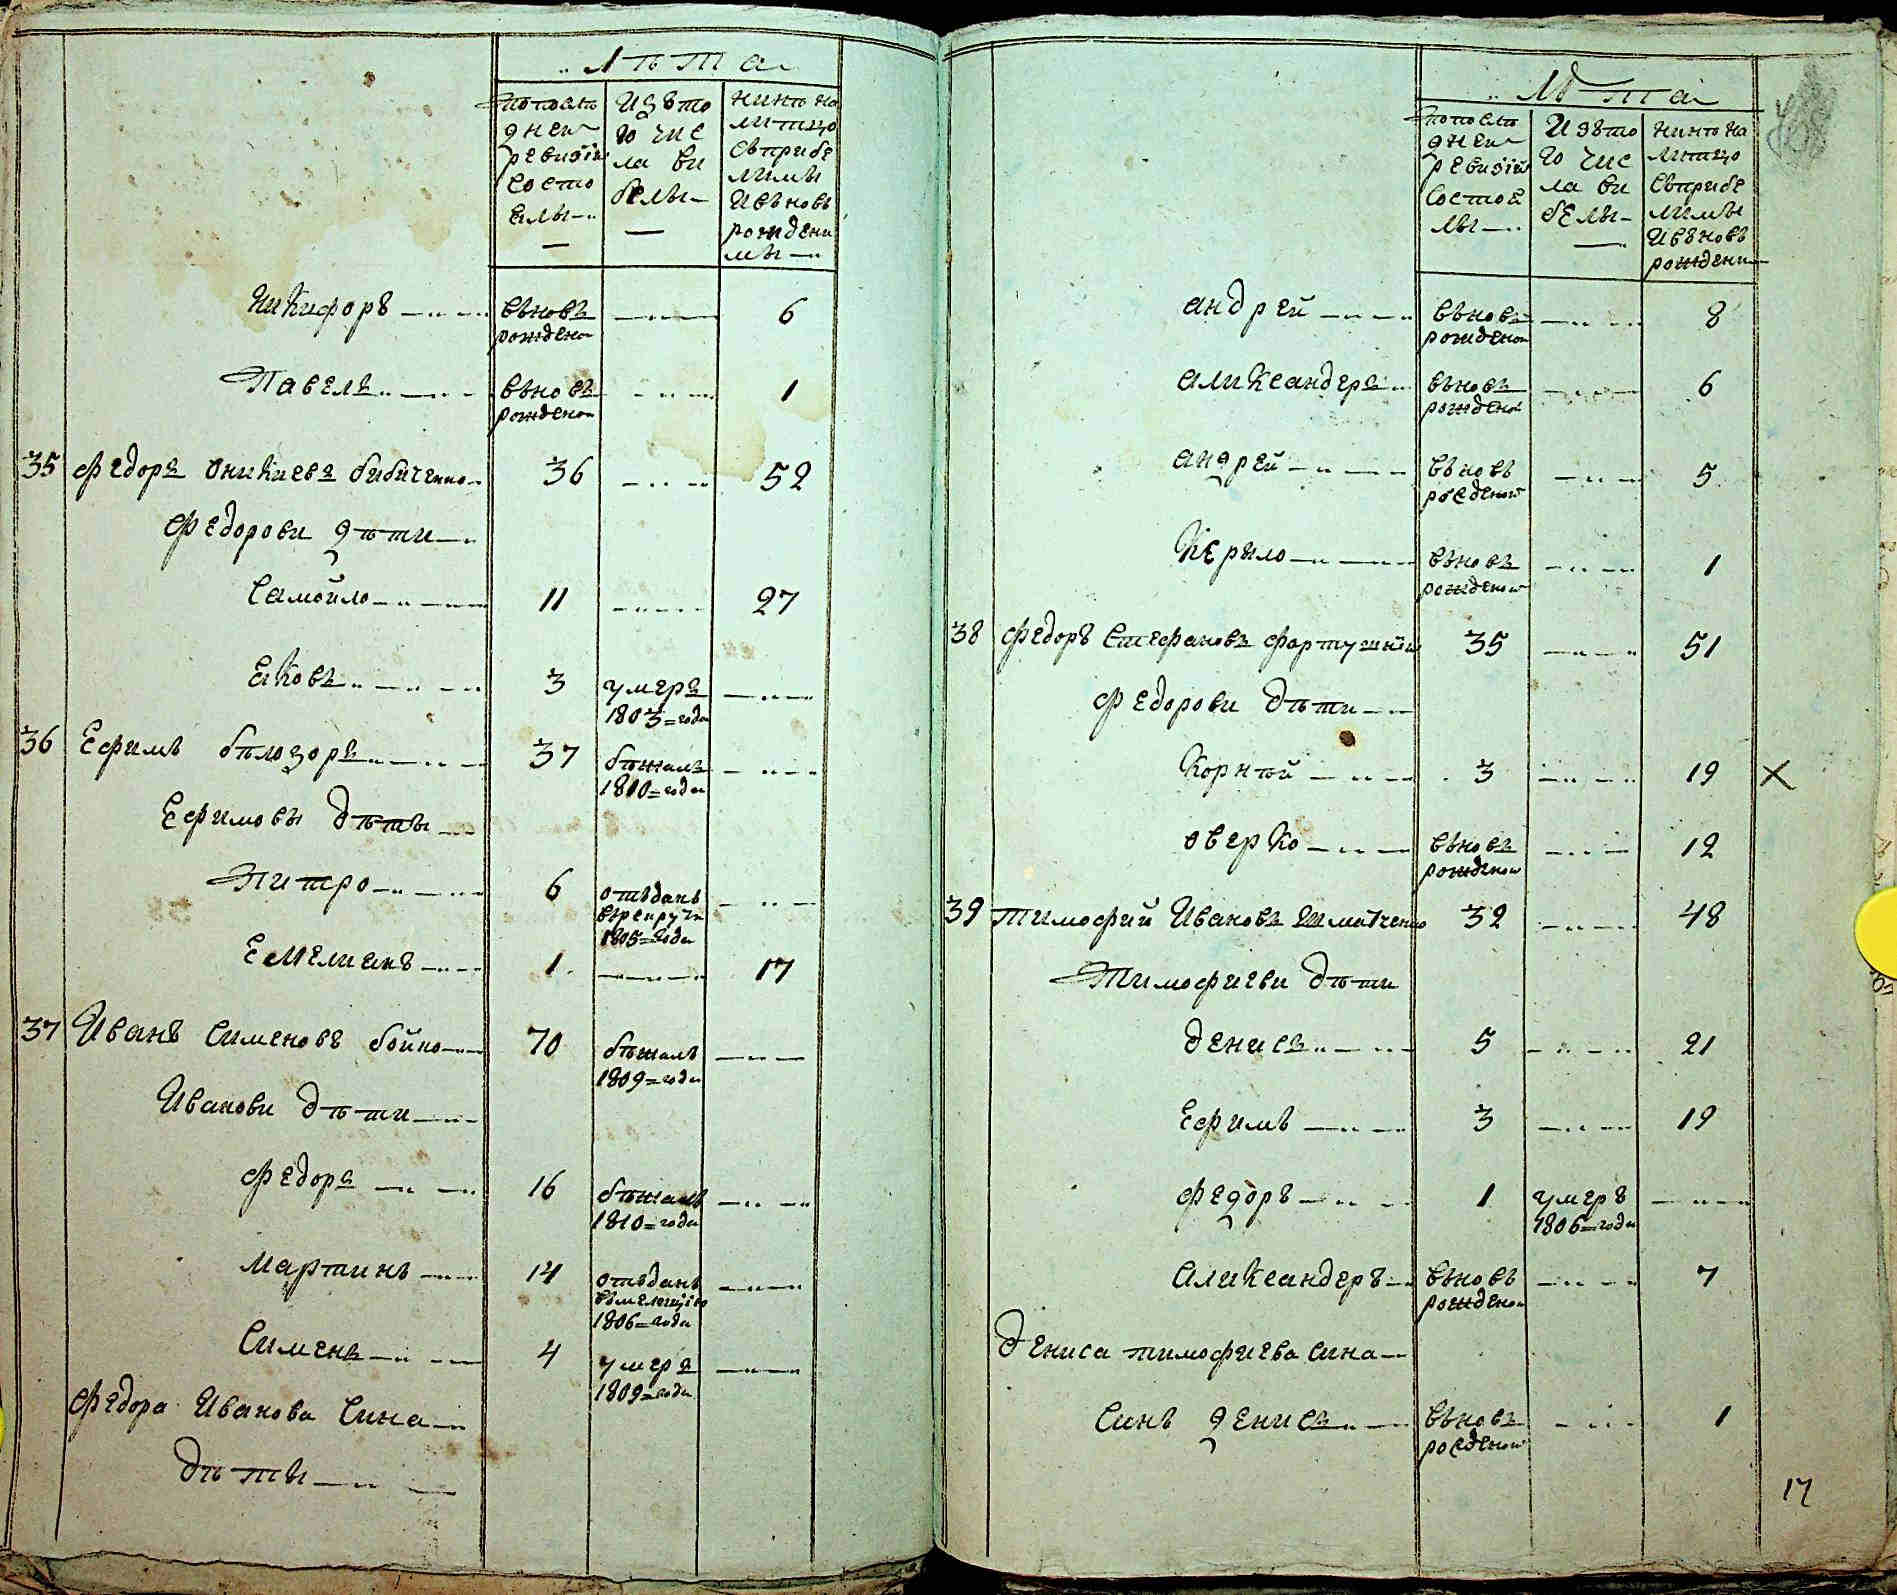 лѣта
попослѣ
дней
ревизїи
состо
ялы
Изъто
го чис
ла ви
былы
нинѣ на
лицо
съприбы
лимы
ивьновь
рождени
мы
Никифоръ вьновъ 6
рожденои
Павелъ вьновъ 1
рожденои
35 Федоръ Оникиевъ бибиченко 36 52
Федорови дѣти
Самойло 11 27
Яковъ 3 умеръ
1803=года
36 Ефимъ бѣлозоръ 37 бѣжалъ
1810=года
Ефимовы дѣты
Питро 6 отъдань
вьрекруты
1805=года
Емелиянъ 1 17
37 Иванъ Сименовъ бойко 70 бѣжалъ
1809=года
Иванови дѣти
Федоръ 16 бѣжалъ
1810=года
Мартинъ 14 отъданъ
вьмелецїю
1806=года
Сименъ 4 умеръ
1809=года
Федора Иванова Сина
дѣты
лѣта
попослѣ
дней
ревизїи
состоя
лы
Изъто
го чис
ла ви
былы
нинѣ на
лицо
съприбы
лимы
ивьновь
рождени
андрей вьновь 8
рожденои
аликсандеръ вьновъ 6
рожденои
андрей вьновь 5
рожденои
Керыло вьновъ 1
рожденои
38 Федоръ Стефановъ фортушнїй 35 51
Федорови дѣти
Корнѣй 3 19 ×
оверко вьновъ 12
рожденои
39 тимофий Ивановъ Шматченко 32 48
Тимофиеви дѣти
денисъ 5 21
Ефимъ 3 19
Федоръ 1 умеръ
1806=года
Аликсандеръ вьновь 7
рожденои
дениса тимофиева Сина
Синъ денисъ вьновъ 1
рожденои
17